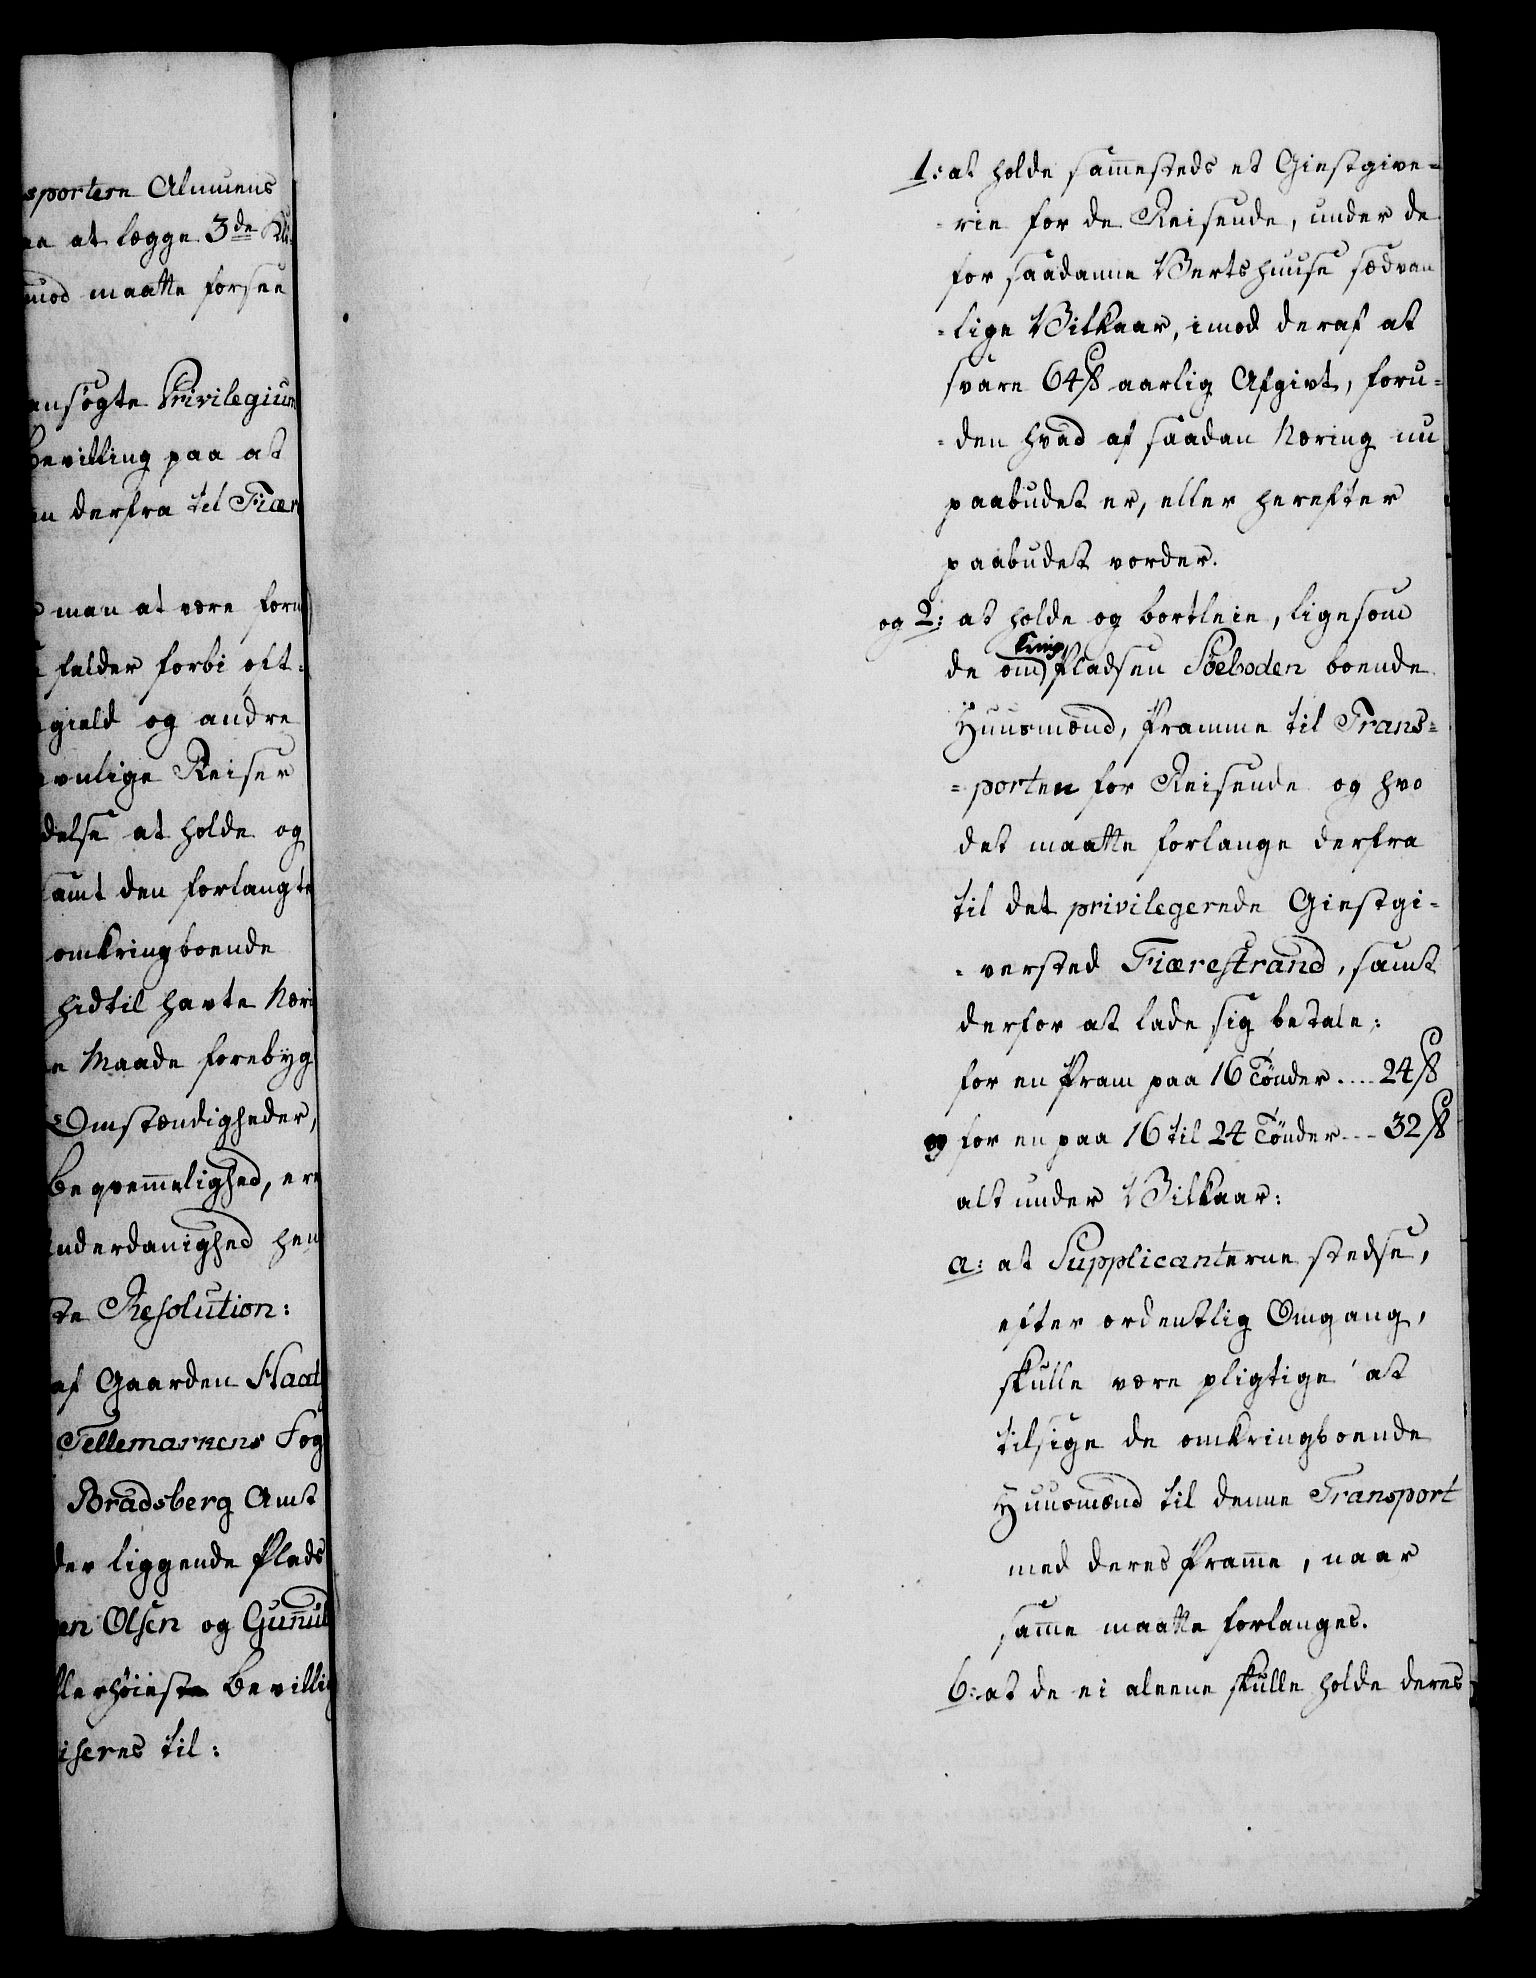 sportere Almuens
at lægge 3de
mod maatte forsee
ansøgte Privilegium
Bevilling paa at
derfra til Fiær
man at være foru
falder forbi oft-
gield og andre
vnlige Reiser
delse at holde og
samt den forlangte
omkringboende
hidtil havte Næri
Maade forebyg
Omstændigheder,
beqvemmelighed, ere
Underdanighed hen
Resolution:
af Gaarden Haat
Tellemarkens Fog
Bradsberg Amt
der liggende Plads
en Olsen og Gunnul
llerhøieste Bevilli
iseres til:
1: at holde sammesteds et Giestgive-
-rie for de Reisende, under de
for saadanne Vertshuuse sædvan
-lige Vilkaar, imod deraf at
svare 64 ß aarlig Afgivt, foru-
-den hvad af saadan Næring nu
paabudet er, eller herefter
paabudet vorder.
og 2: at holde og bortleie, ligesom
de omkring Pladsen Söeboden boende
Huusmænd, Pramme til Trans-
=porten for Reisende og hvo
det maatte forlange derfra
til det privilegerede Giestgi-
-versted Fiærestrand, samt
derfor at lade sig betale:
for en Pram paa 16 Tönder .... 24 ß
og for en paa 16 til 24 Tönder ... 32 ß
alt under Vilkaar:
a: at Supplicanterne stedse,
efter ordentlig Omgang,
skulle være pligtige at
tilsige de omkringboende
Huusmænd til denne Transport
med deres Pramme, naar
samme maatte forlanges.
b: at de ei aleene skulle holde deres